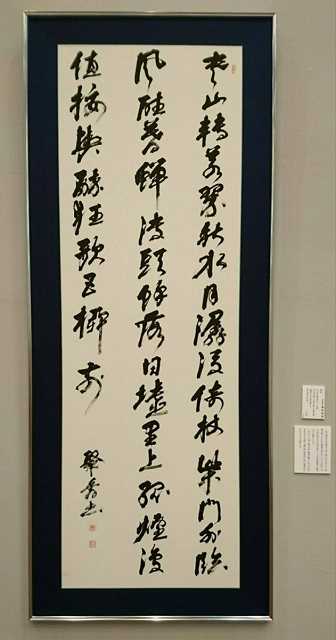 寒山轉蒼翠秋水日潺湲倚杖柴門外臨
風聽暮蟬渡頭餘落日墟里上孤煙復
值接輿醉狂歌五柳前